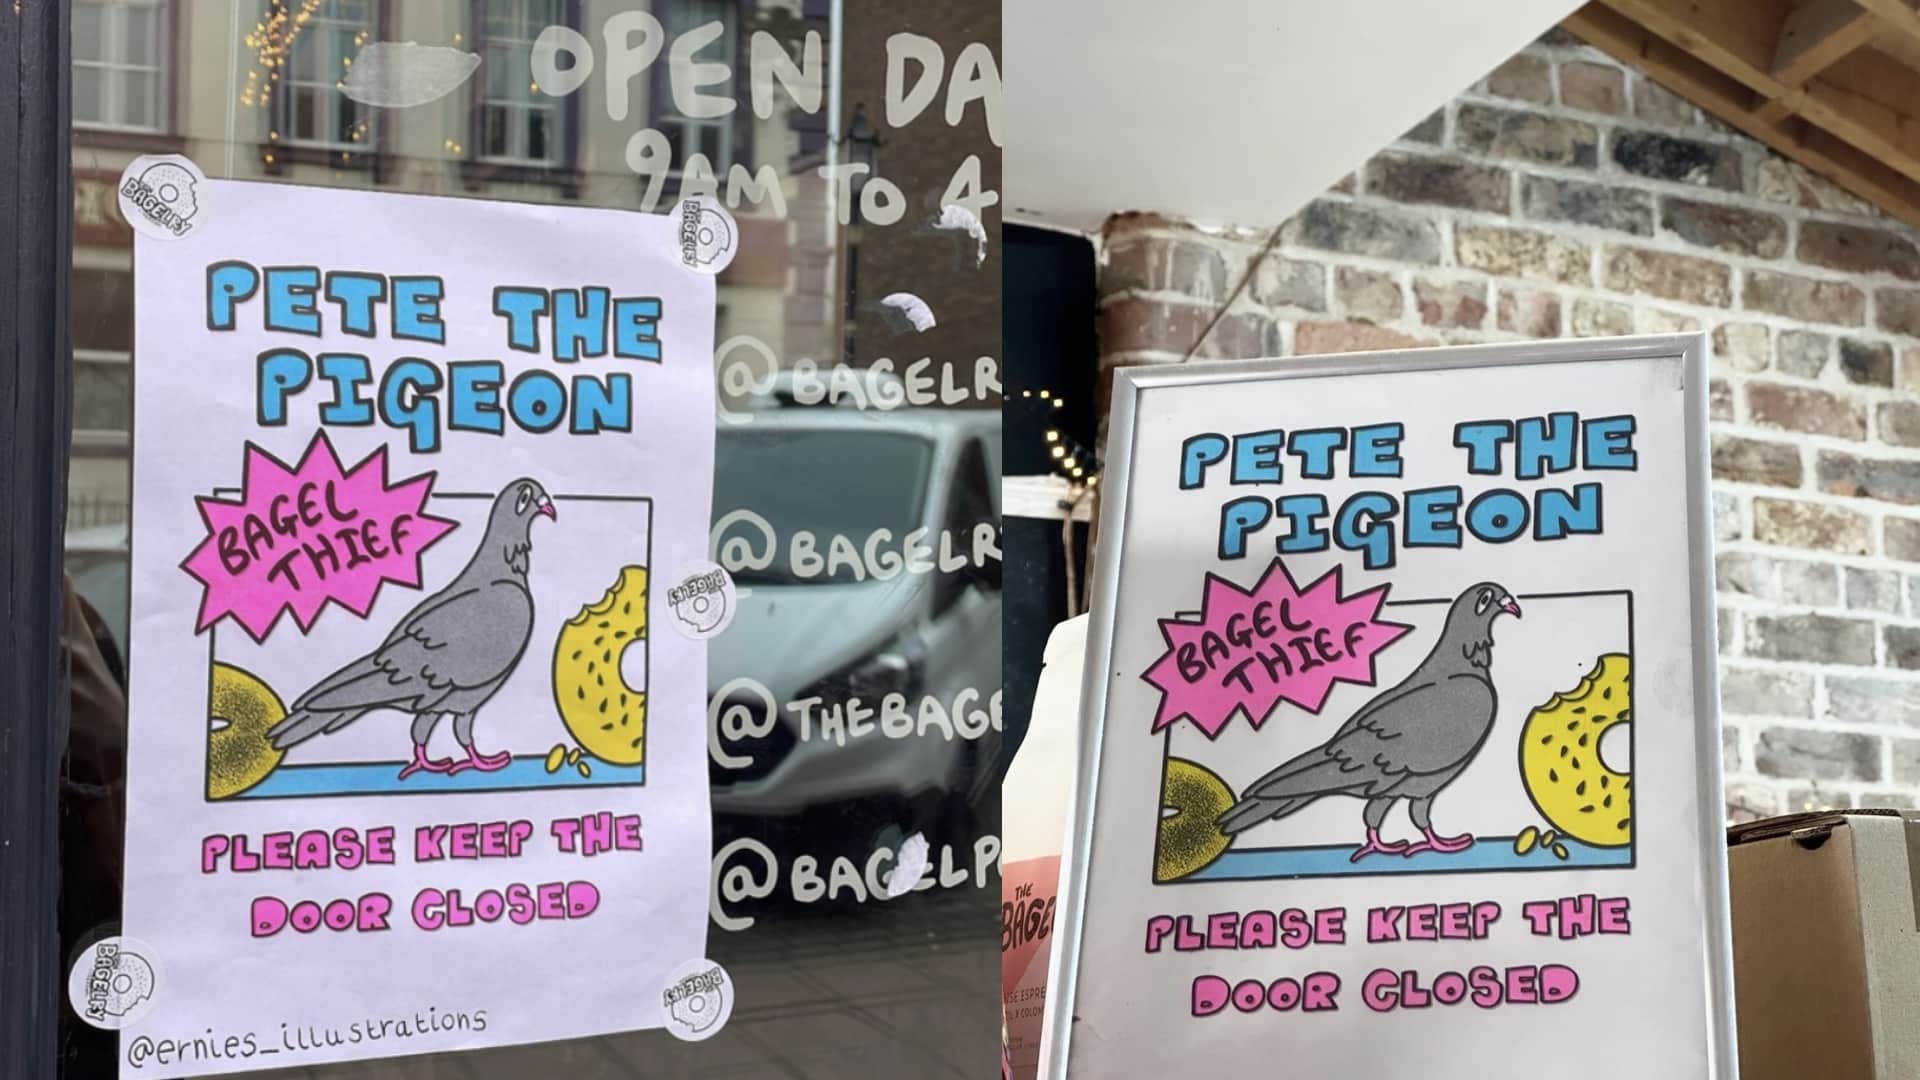 OPEN DA
9AM TO 4
THE BAGELRY
BAGELRY
PETE THE
PIGEON
BAGEL
THIEF
@BAGELR
@BAGELR
BAGELRY
@THEBAGE
PLEASE KEEP THE
DOOR CLOSED
@BAGELP
THE BAGELRY
BAGELRY
@ernies_illustrations
PETE THE
PIGEON
BAGEL
THIEF
PLEASE KEEP THE
DOOR CLOSED
THE
BAGE
SE ESPRE
X COLOM